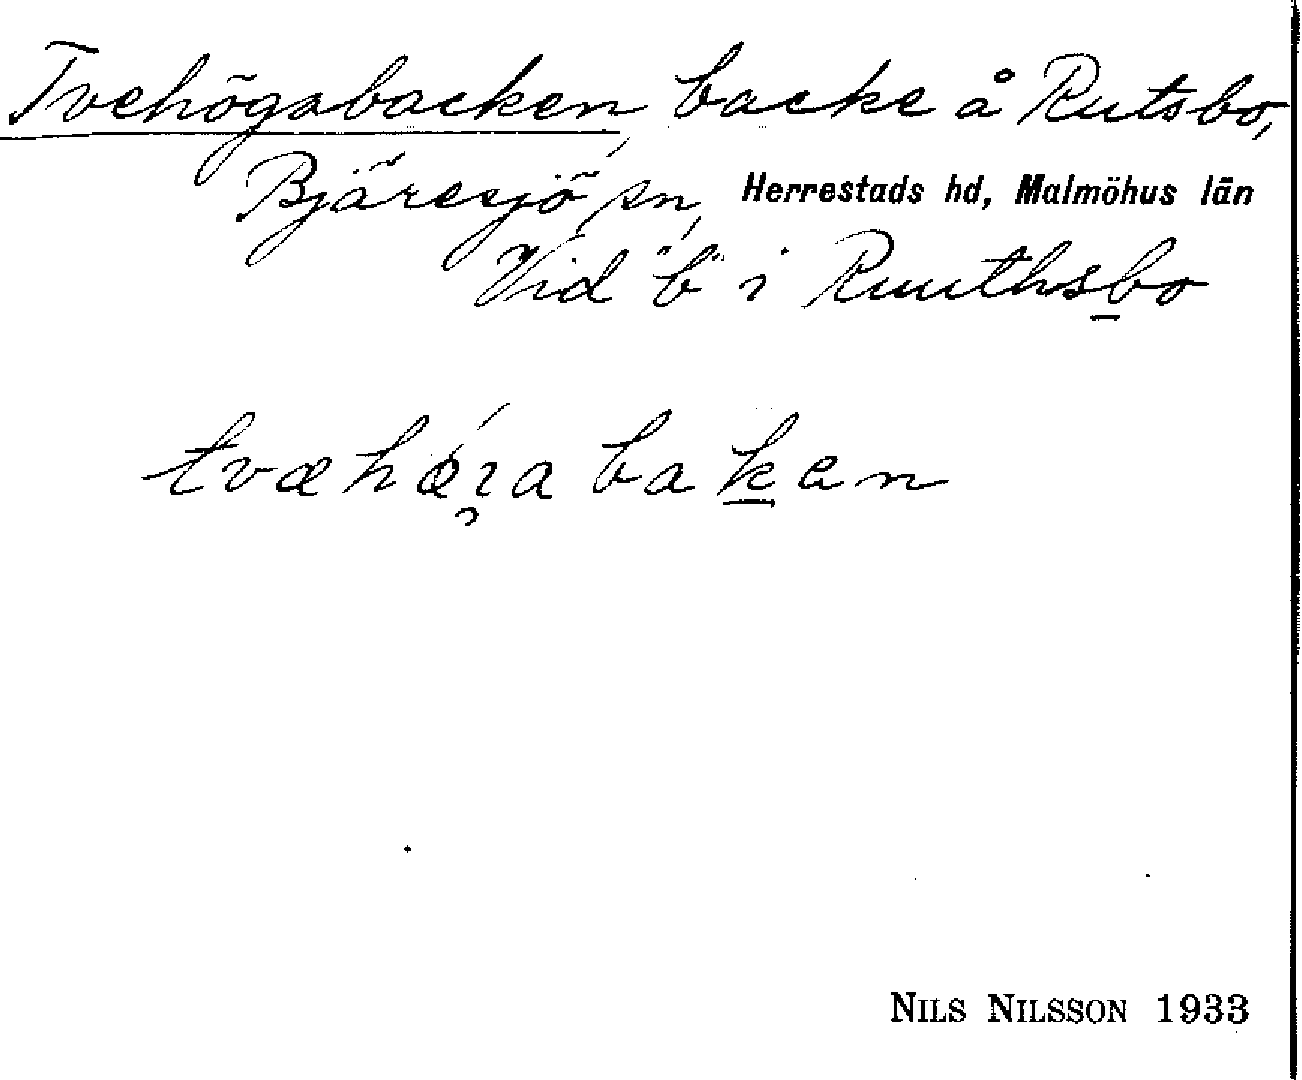 Tvehögsbacken, backe å Rutsbo,
Bjäresjö sn, Herrestads hd, Malmöhus län
Vid "b" i Ruuthsbo
tvæhǿɿabaken
NILS NILSSON 1933